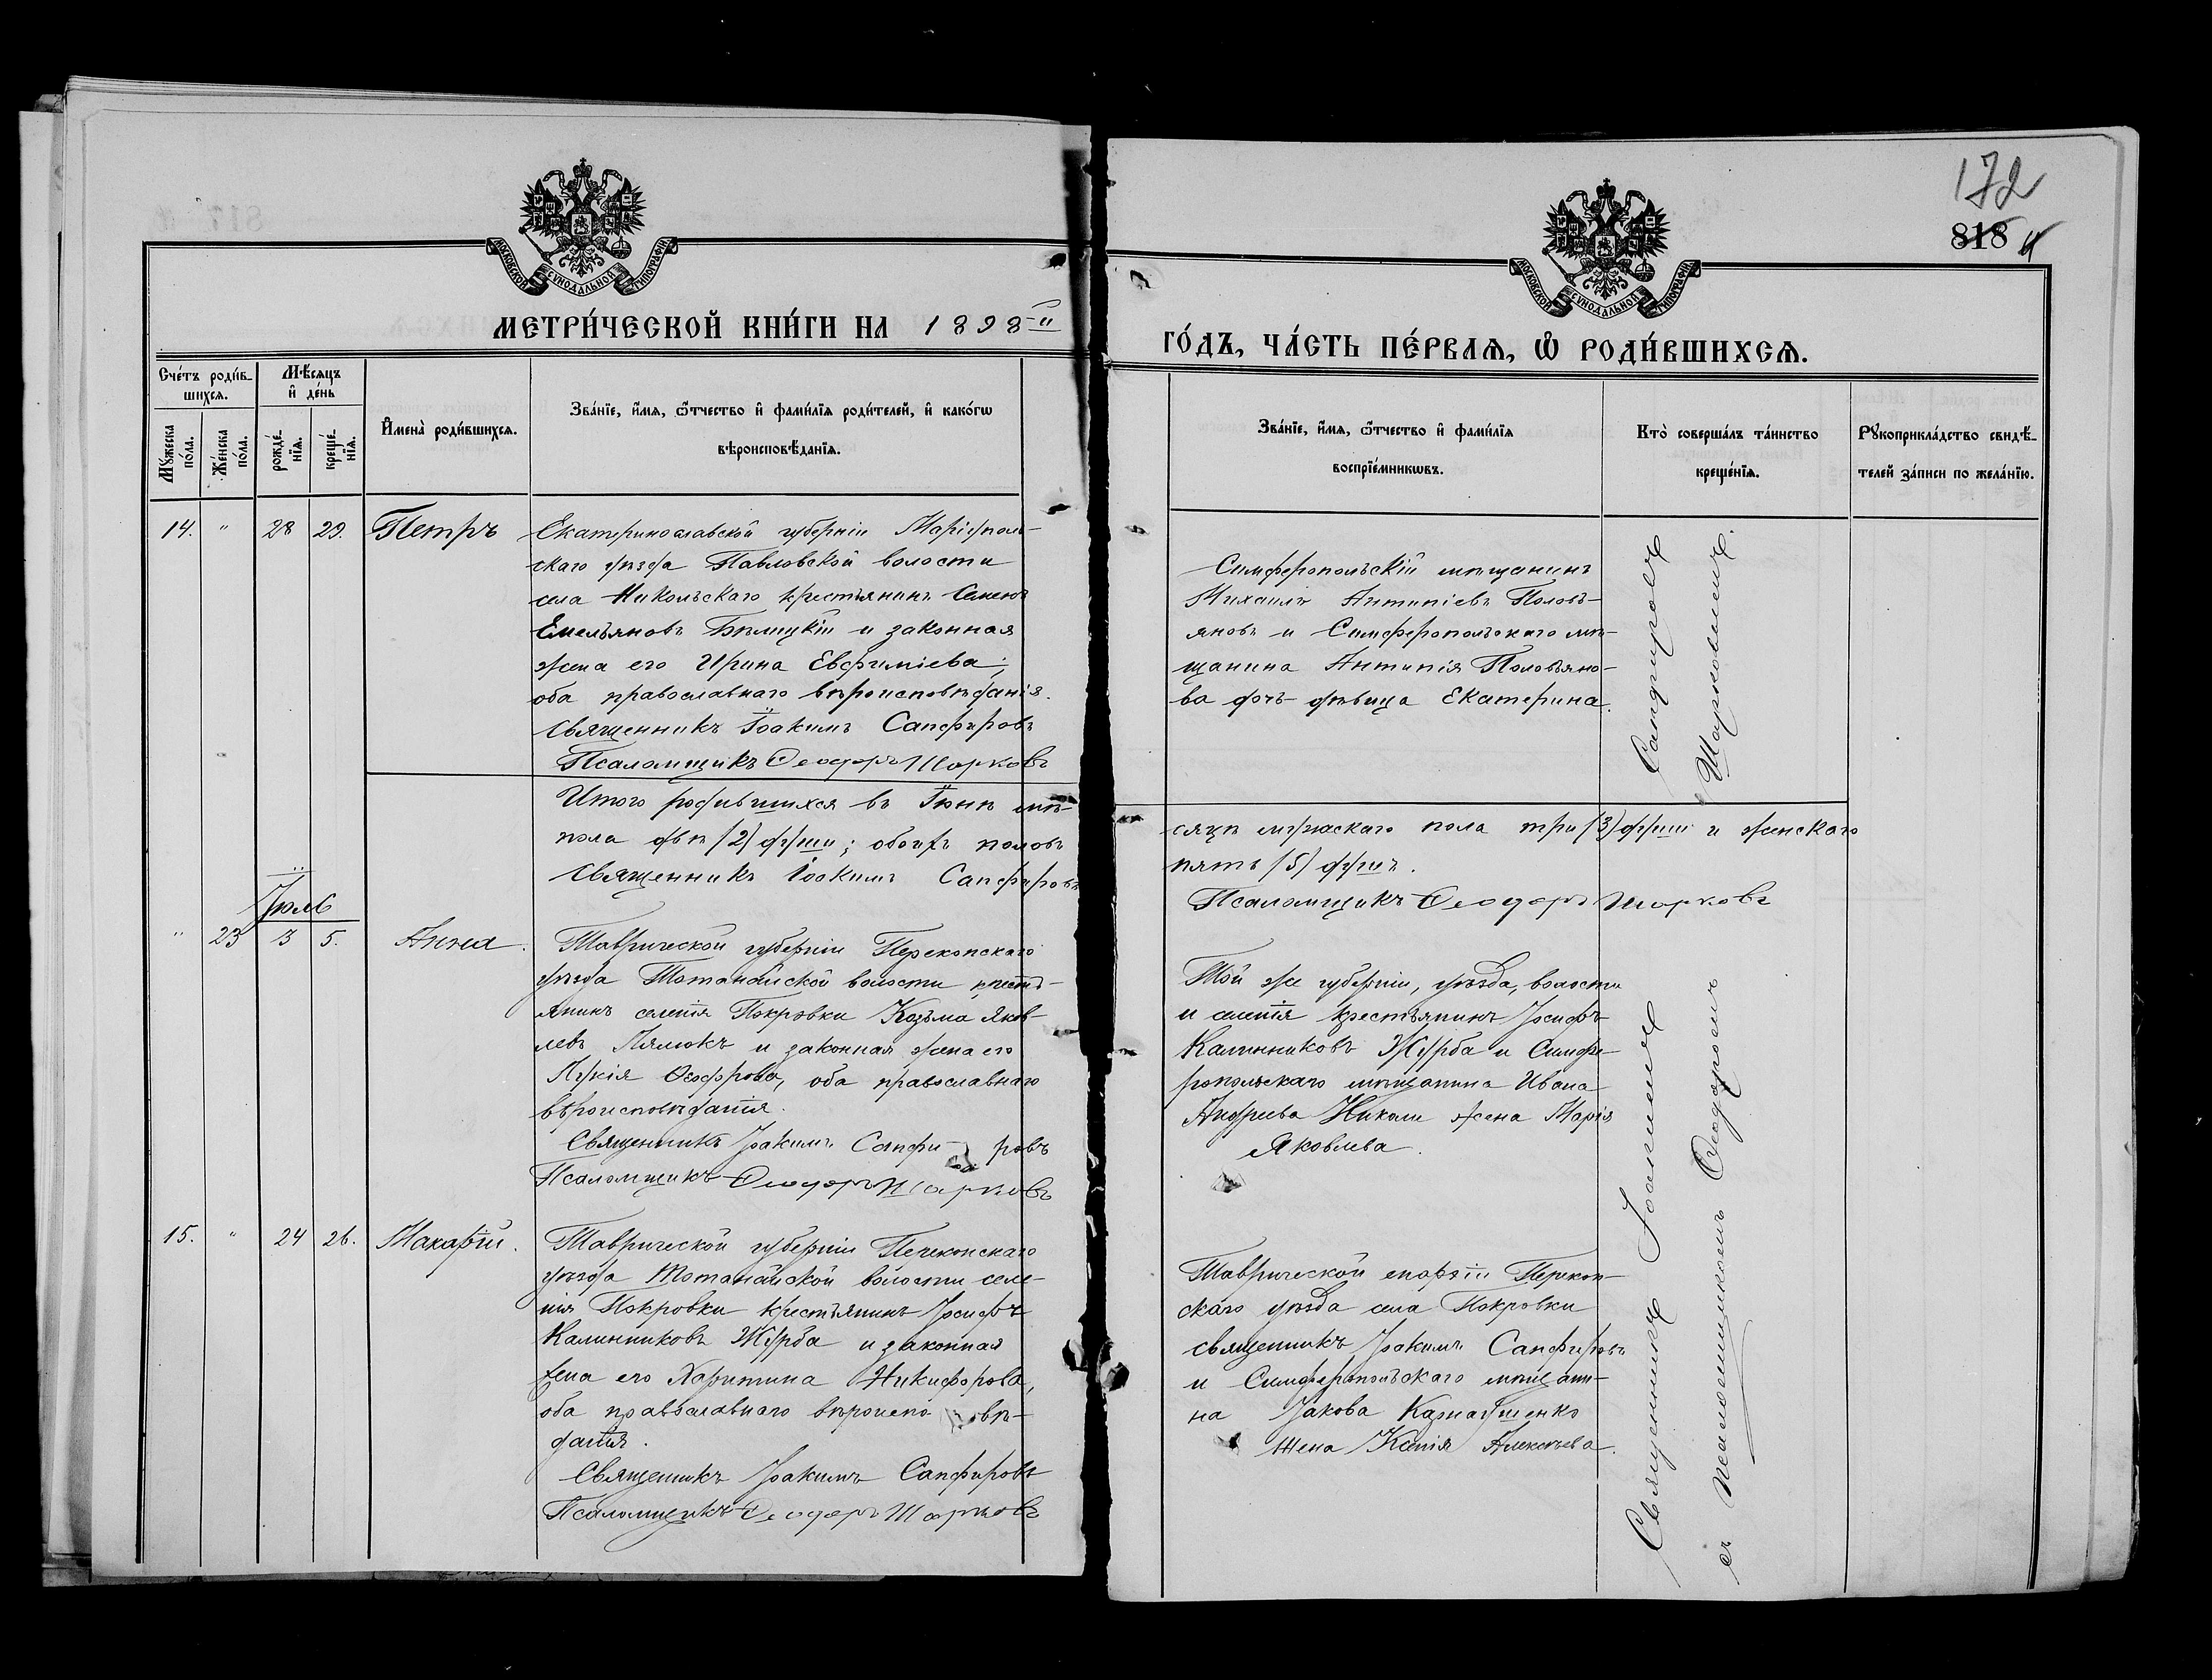 172
818
МОСКОВСКОЙ СѴНОДАЛЬНОЙ ТИПОГРАФІИ
МОСКОВСКОЙ СѴНОДАЛЬНОЙ ТИПОГРАФІИ
МЕТРИ́ЧЕСКОЙ КНИ́ГИ НА 1898-й
ГО́ДЪ, ЧА́СТЬ ПЕ́РВАѦ, Ѽ РОДИ́ВШИХСѦ.
Сче́тъ роди́в-
шихсѧ.
Мѣ́сѧцъ
и҆ де́нь
Мꙋ́жеска
по́ла.
Же́нска
по́ла.
рожде́-
нїѧ.
креще́-
нїѧ.
И҆мена̀ роди́вшихсѧ.
Зва́нїе, и҆́мѧ, ѻ҆́тчество и҆ фамѝлїѧ роди́телей, и҆ како́гѡ
вѣроисповѣ́данїѧ.
Зва́нїе, и҆́мѧ, ѻ҆́тчество и҆ фами́лїѧ
воспрїе́мникѡвъ.
Кто̀ соверша́лъ та́инство
креще́нїѧ.
Рꙋкоприкла́дство свидѣ́-
телей за́писи по жела́нїю.
14. " 28 29. Петръ
Екатеринославской губерніи Маріуполь-
скаго уѣзда Павловской волости
села Никольскаго крестьянинъ Семенъ
Емельяновъ Бѣлицкій и законная
жена его Ирина Евфиміева;
оба православнаго вѣроисповѣданія.
Священникъ Іоакимъ Сапфировъ
Псаломщикъ Ѳеодоръ Шарковъ
Симферопольскій мѣщанинъ
Михаилъ Антипіевъ Половъ-
яновъ и Симферопольскаго мѣ-
щанина Антипія Половьяно-
ва дочь дѣвица Екатерина.
Итого родившихся въ Іюнѣ мѣ-
сяцѣ мужскаго пола три /3/ души и женскаго
пола двѣ /2/ души; обоихъ половъ
пять /5/ душъ.
Священникъ Іоакимъ Сапфировъ
Псаломщикъ Ѳеодоръ Шарковъ
Іюль
" 23 3 5. Анна.
Таврической губерніи Перекопскаго
уѣзда Тотанайской волости кресть-
янинъ селенія Покровки Козьма Яков-
левъ Лялюкъ и законная жена его
Лукія Ѳеодорова, оба православнаго
вѣроисповѣданія.
Священникъ Іоакимъ Сапфировъ
Псаломщикъ Ѳеодоръ Шарковъ
Той же губерніи, уѣзда, волости
и селенія крестьянинъ Іосифъ
Калинниковъ Журба и Симфе-
ропольскаго мѣщанина Ивана
Андреева Николи жена Марія
Яковлева.
15. " 24 26. Макарій.
Таврической губерніи Перекопскаго
уѣзда Тотанайской волости селе-
нія Покровки крестьянинъ Іосифъ
Калинниковъ Журба и законная
жена его Харитина Никифорова,
оба православнаго вѣроиспо вѣ-
данія.
Священникъ Іоакимъ Сапфировъ
Псаломщикъ Ѳеодоръ Шарковъ
Таврической епархіи Перекоп-
скаго уѣзда села Покровки
священникъ Іоакимъ Сапфировъ
и Симферопольскаго мѣщани-
на Іакова
жена Ксенія Алексѣева.
Священникъ Іоакимъ Сапфировъ
съ псаломщикомъ Ѳеодоромъ Шарковымъ.